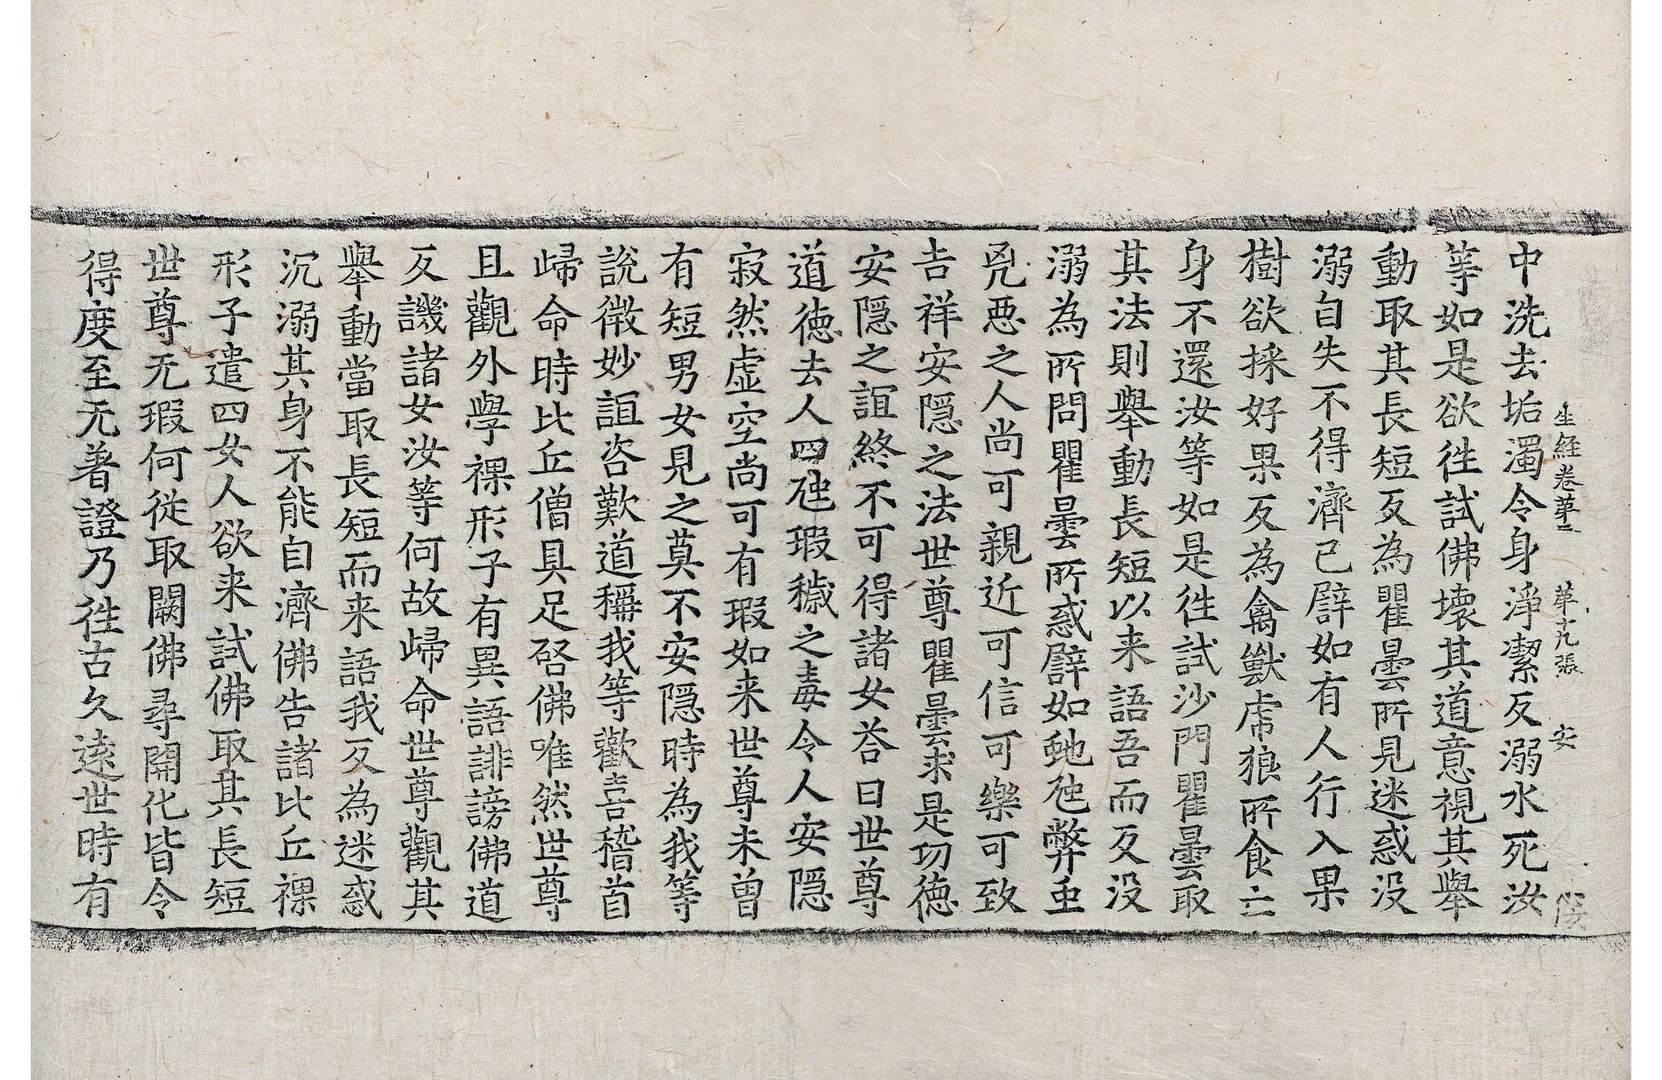 生經卷第二 第十九張 安
中洗去垢濁令身淨潔反溺水死汝
等如是欲徃試佛壞其道意視其舉
動取其長短反為瞿曇所見迷惑没
溺自失不得濟已譬如有人行入果
樹欲採好果反為禽獸虎狼所食亡
身不還汝等如是徃試沙門瞿曇取
其法則舉動長短以来語吾而反没
溺為所問瞿曇所惑譬如虵虺弊虫
兇惡之人尚可親近可信可樂可致
吉祥安隱之法世尊瞿曇求是功德
安隱之誼終不可得諸女荅曰世尊
道德去人四虺瑕穢之毒令人安隱
寂然虛空尚可有瑕如来世尊未曾
有短男女見之莫不安隱時為我等
說微妙誼咨歎道稱我等歡喜稽首
歸命時比丘僧具足啓佛唯然世尊
且觀外學裸形子有異語誹謗佛道
反譏諸女汝等何故歸命世尊觀其
舉動當取長短而来語我反為迷惑
沉溺其身不能自濟佛告諸比丘裸
形子遣四女人欲来試佛取其長短
世尊无瑕何從取闕佛尋開化皆令
得度至无著證乃徃古久遠世時有